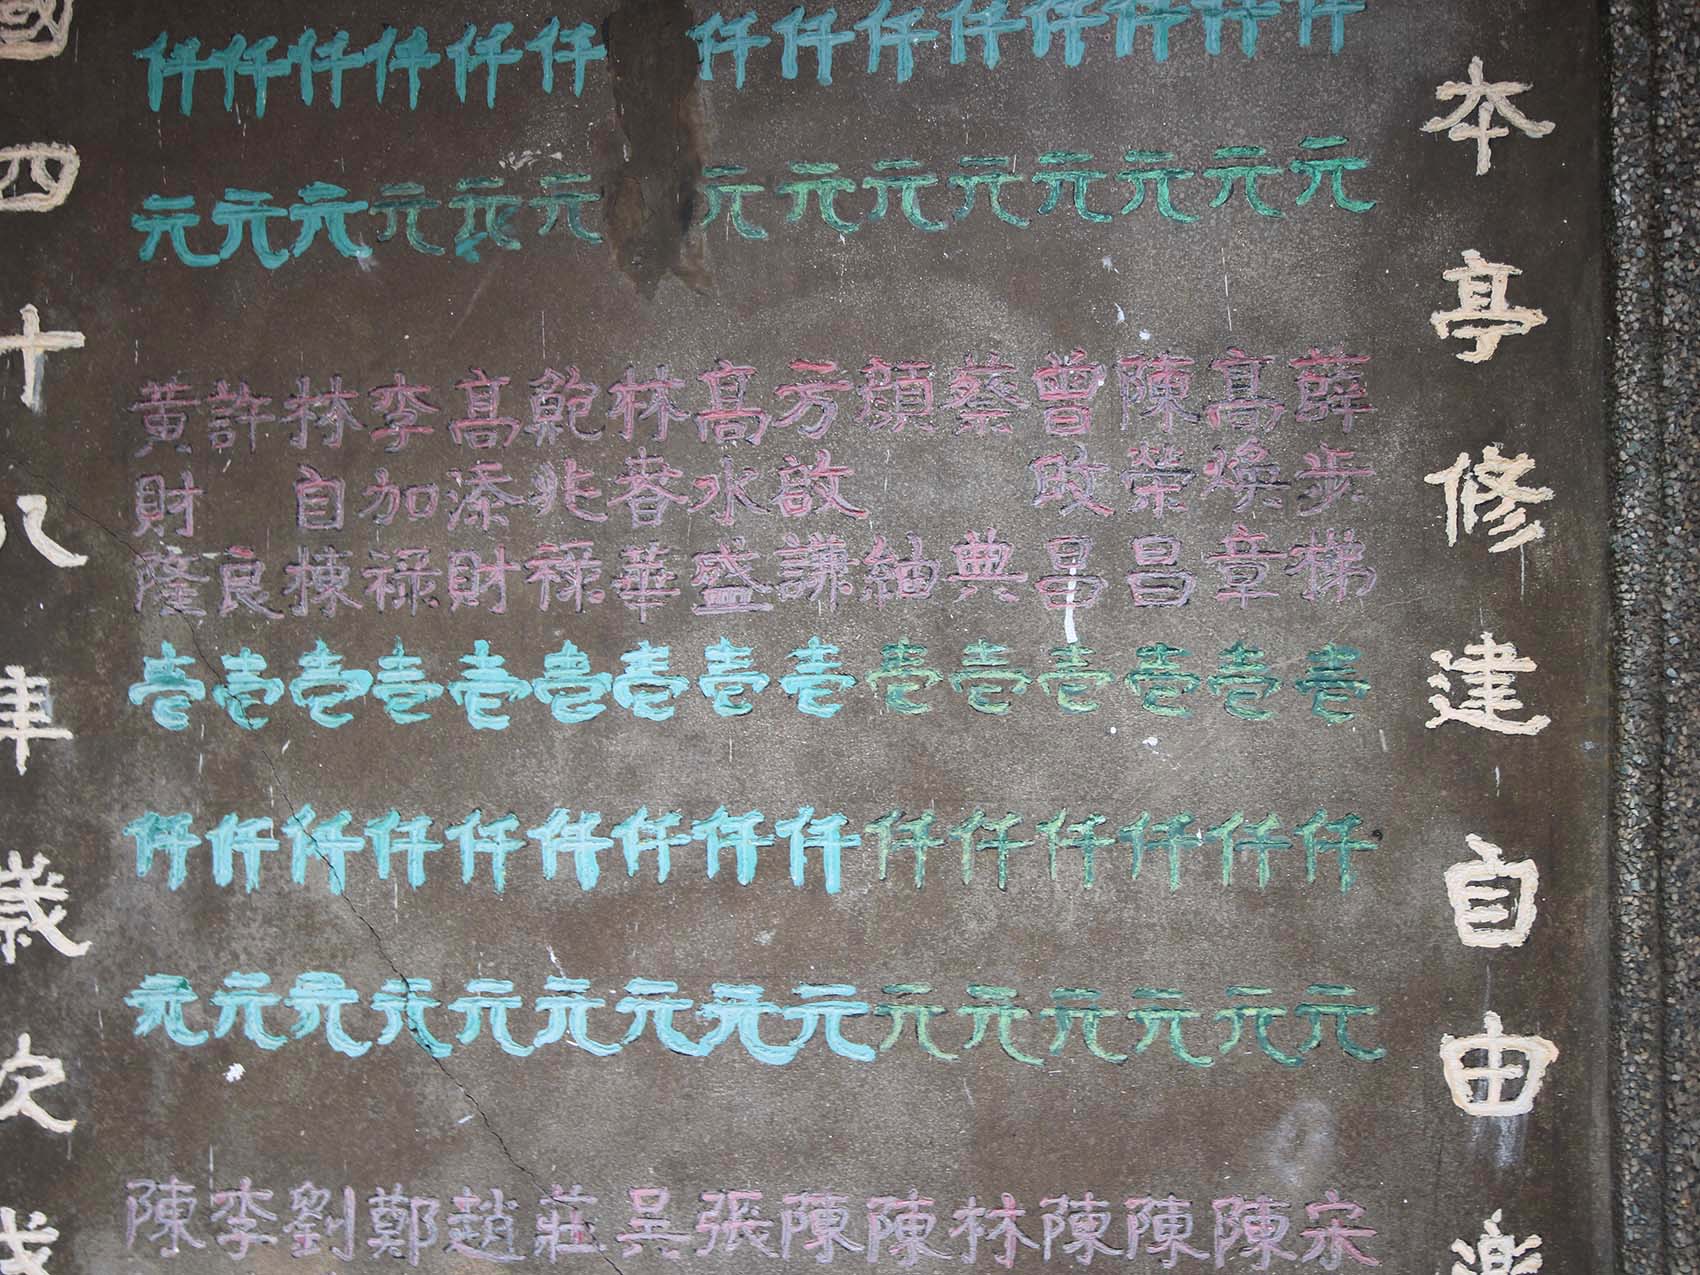 本亭修建自由樂
仟元 薛步梯壹仟元 宋
仟元 高煥章壹仟元 陳
仟元 陳榮昌壹仟元 陳
仟元 曾昌壹仟元 陳
仟元 蔡典壹仟元 林
仟元 顏紬壹仟元 陳
仟元 方啟謙壹仟元 陳
仟元 高水盛壹仟元 張
林春華壹仟元 吳
仟元 兆祿壹仟元 莊
仟元 高添財壹仟元 趙
仟元 李加祿壹仟元 鄭
仟元 林自棟壹仟元 劉
仟元 許良壹仟元 李
仟元 黃財隆壹仟元 陳
國四十八年歲次戊